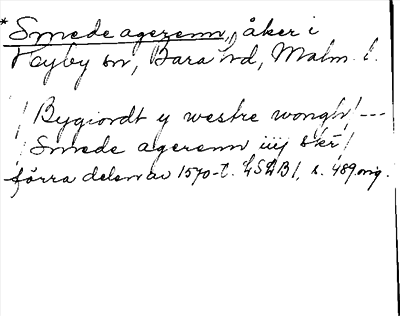 *Smede agerenn, åker i
Hyby sn, Bara hd, Malm. l.
/Bygiordt y westre wongh/---
/Smede agerenn iiij skr/
förra delen av 1570-t. LSÄBI, s. 489 orig.